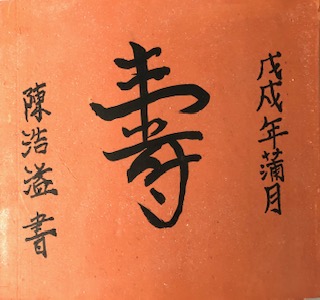 戊戌年蒲月
壽
陳浩溢書